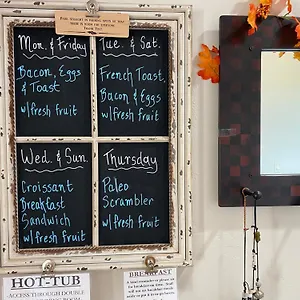 Mon. & Friday
Bacon, Eggs
& Toast
w/fresh fruit
Tue. & Sat.
French Toast
Bacon & Eggs
w/fresh fruit
Wed. & Sun.
Croissant
Breakfast
Sandwich
w/fresh fruit
Thursday
Paleo
Scrambler
w/fresh fruit
HOT-TUB
BREAKFAST